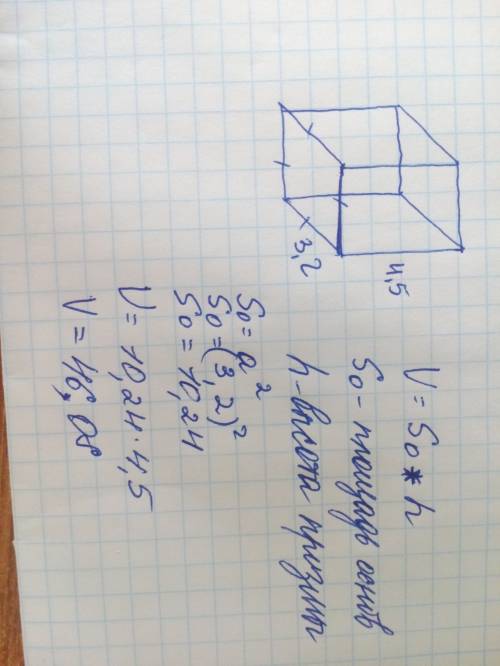 3,2
4,5
V = So * h
So - площадь основ
h - высота призмы
So = a²
So = (3,2)²
So = 10,24
V = 10,24 · 4,5
V = 46,08